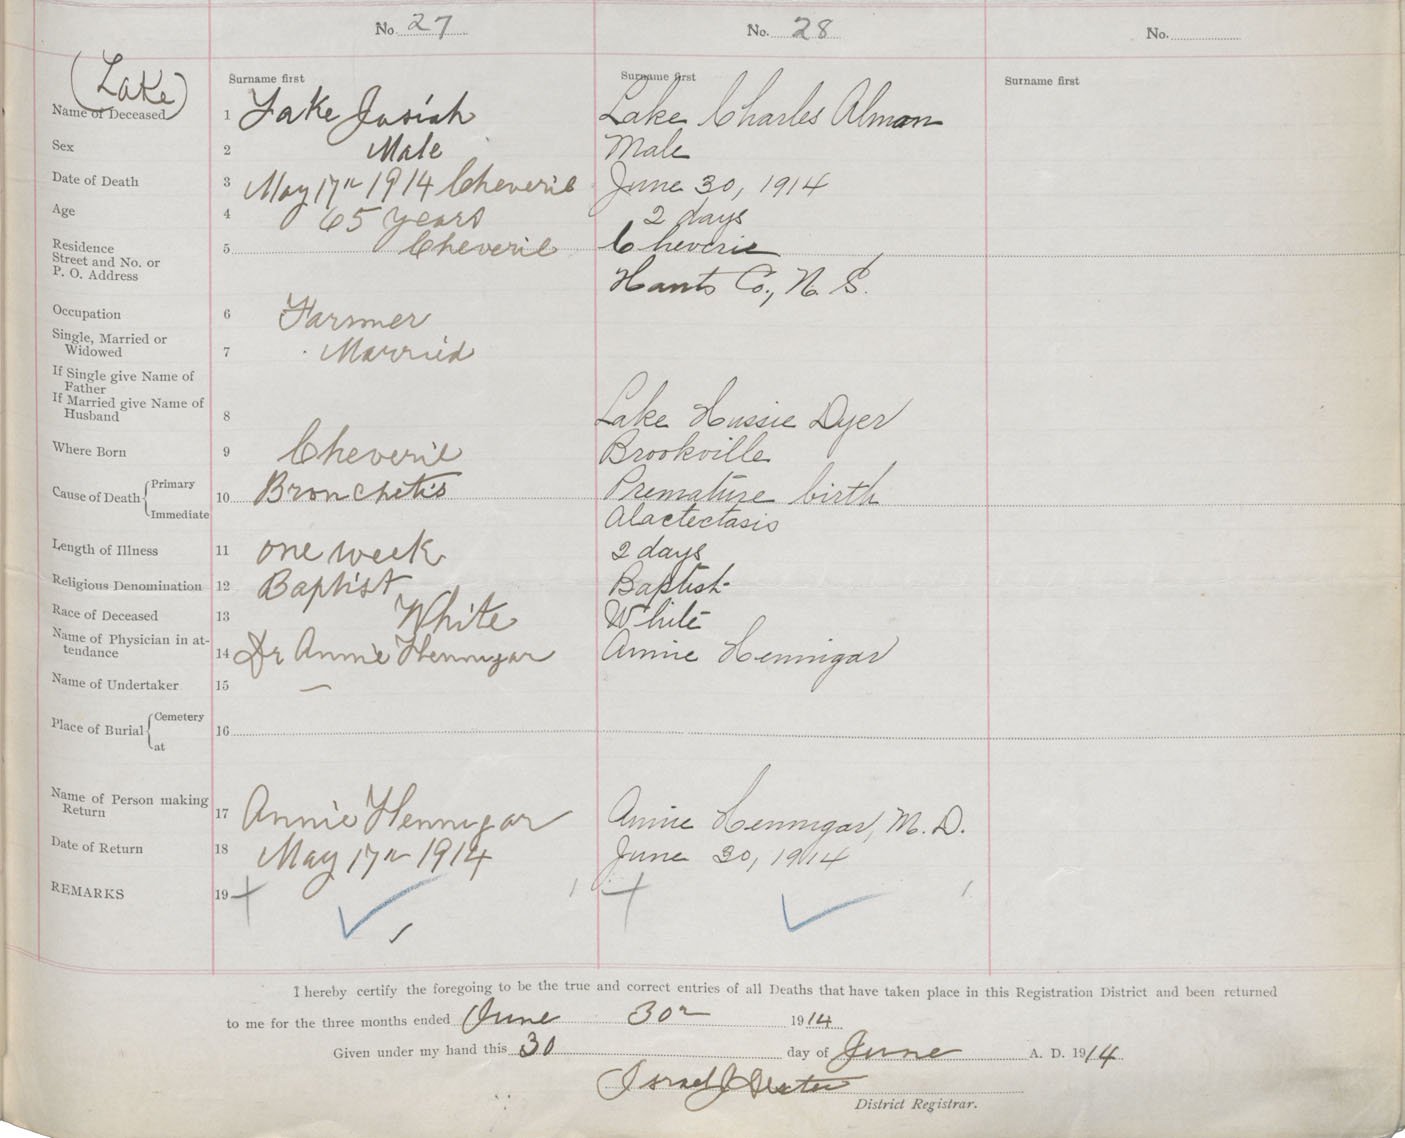 No. 27
No. 28
No.
(Lake)
Surname first
Surname first
Surname first
Name of Deceased 1 Lake Josiah
Lake Charles Alman
Sex 2 Male
Male
Date of Death 3 May 17th 1914 Cheverie
June 30, 1914
Age 4 65 years
2 days
Residence
Street and No. or
P. O. Address
5 Cheverie
Cheverie
Hants Co., N. S.
Occupation 6 Farmer
Single, Married or
Widowed 7 Married
If Single give Name of
Father
If Married give Name of
Husband 8
Lake Dyer
Where Born 9 Cheverie
Brookville
Cause of Death Primary
Immediate
10 Bronchetis
Premature birth
Alactectasis
Length of Illness 11 one week
2 days
Religious Denomination 12 Baptist
Baptist
Race of Deceased 13 White
White
Name of Physician in at-
tendance 14 Dr Annie Hennigar
Annie Hennigar
Name of Undertaker 15 —
Place of Burial Cemetery
at
16
Name of Person making
Return 17 Annie Hennigar
Annie Hennigar, M. D.
Date of Return 18 May 17th 1914
June 30, 1914
REMARKS 19
I hereby certify the foregoing to be the true and correct entries of all Deaths that have taken place in this Registration District and been returned
to me for the three months ended June 30th 1914
Given under my hand this 30 day of June A. D. 1914
Israel J
District Registrar.